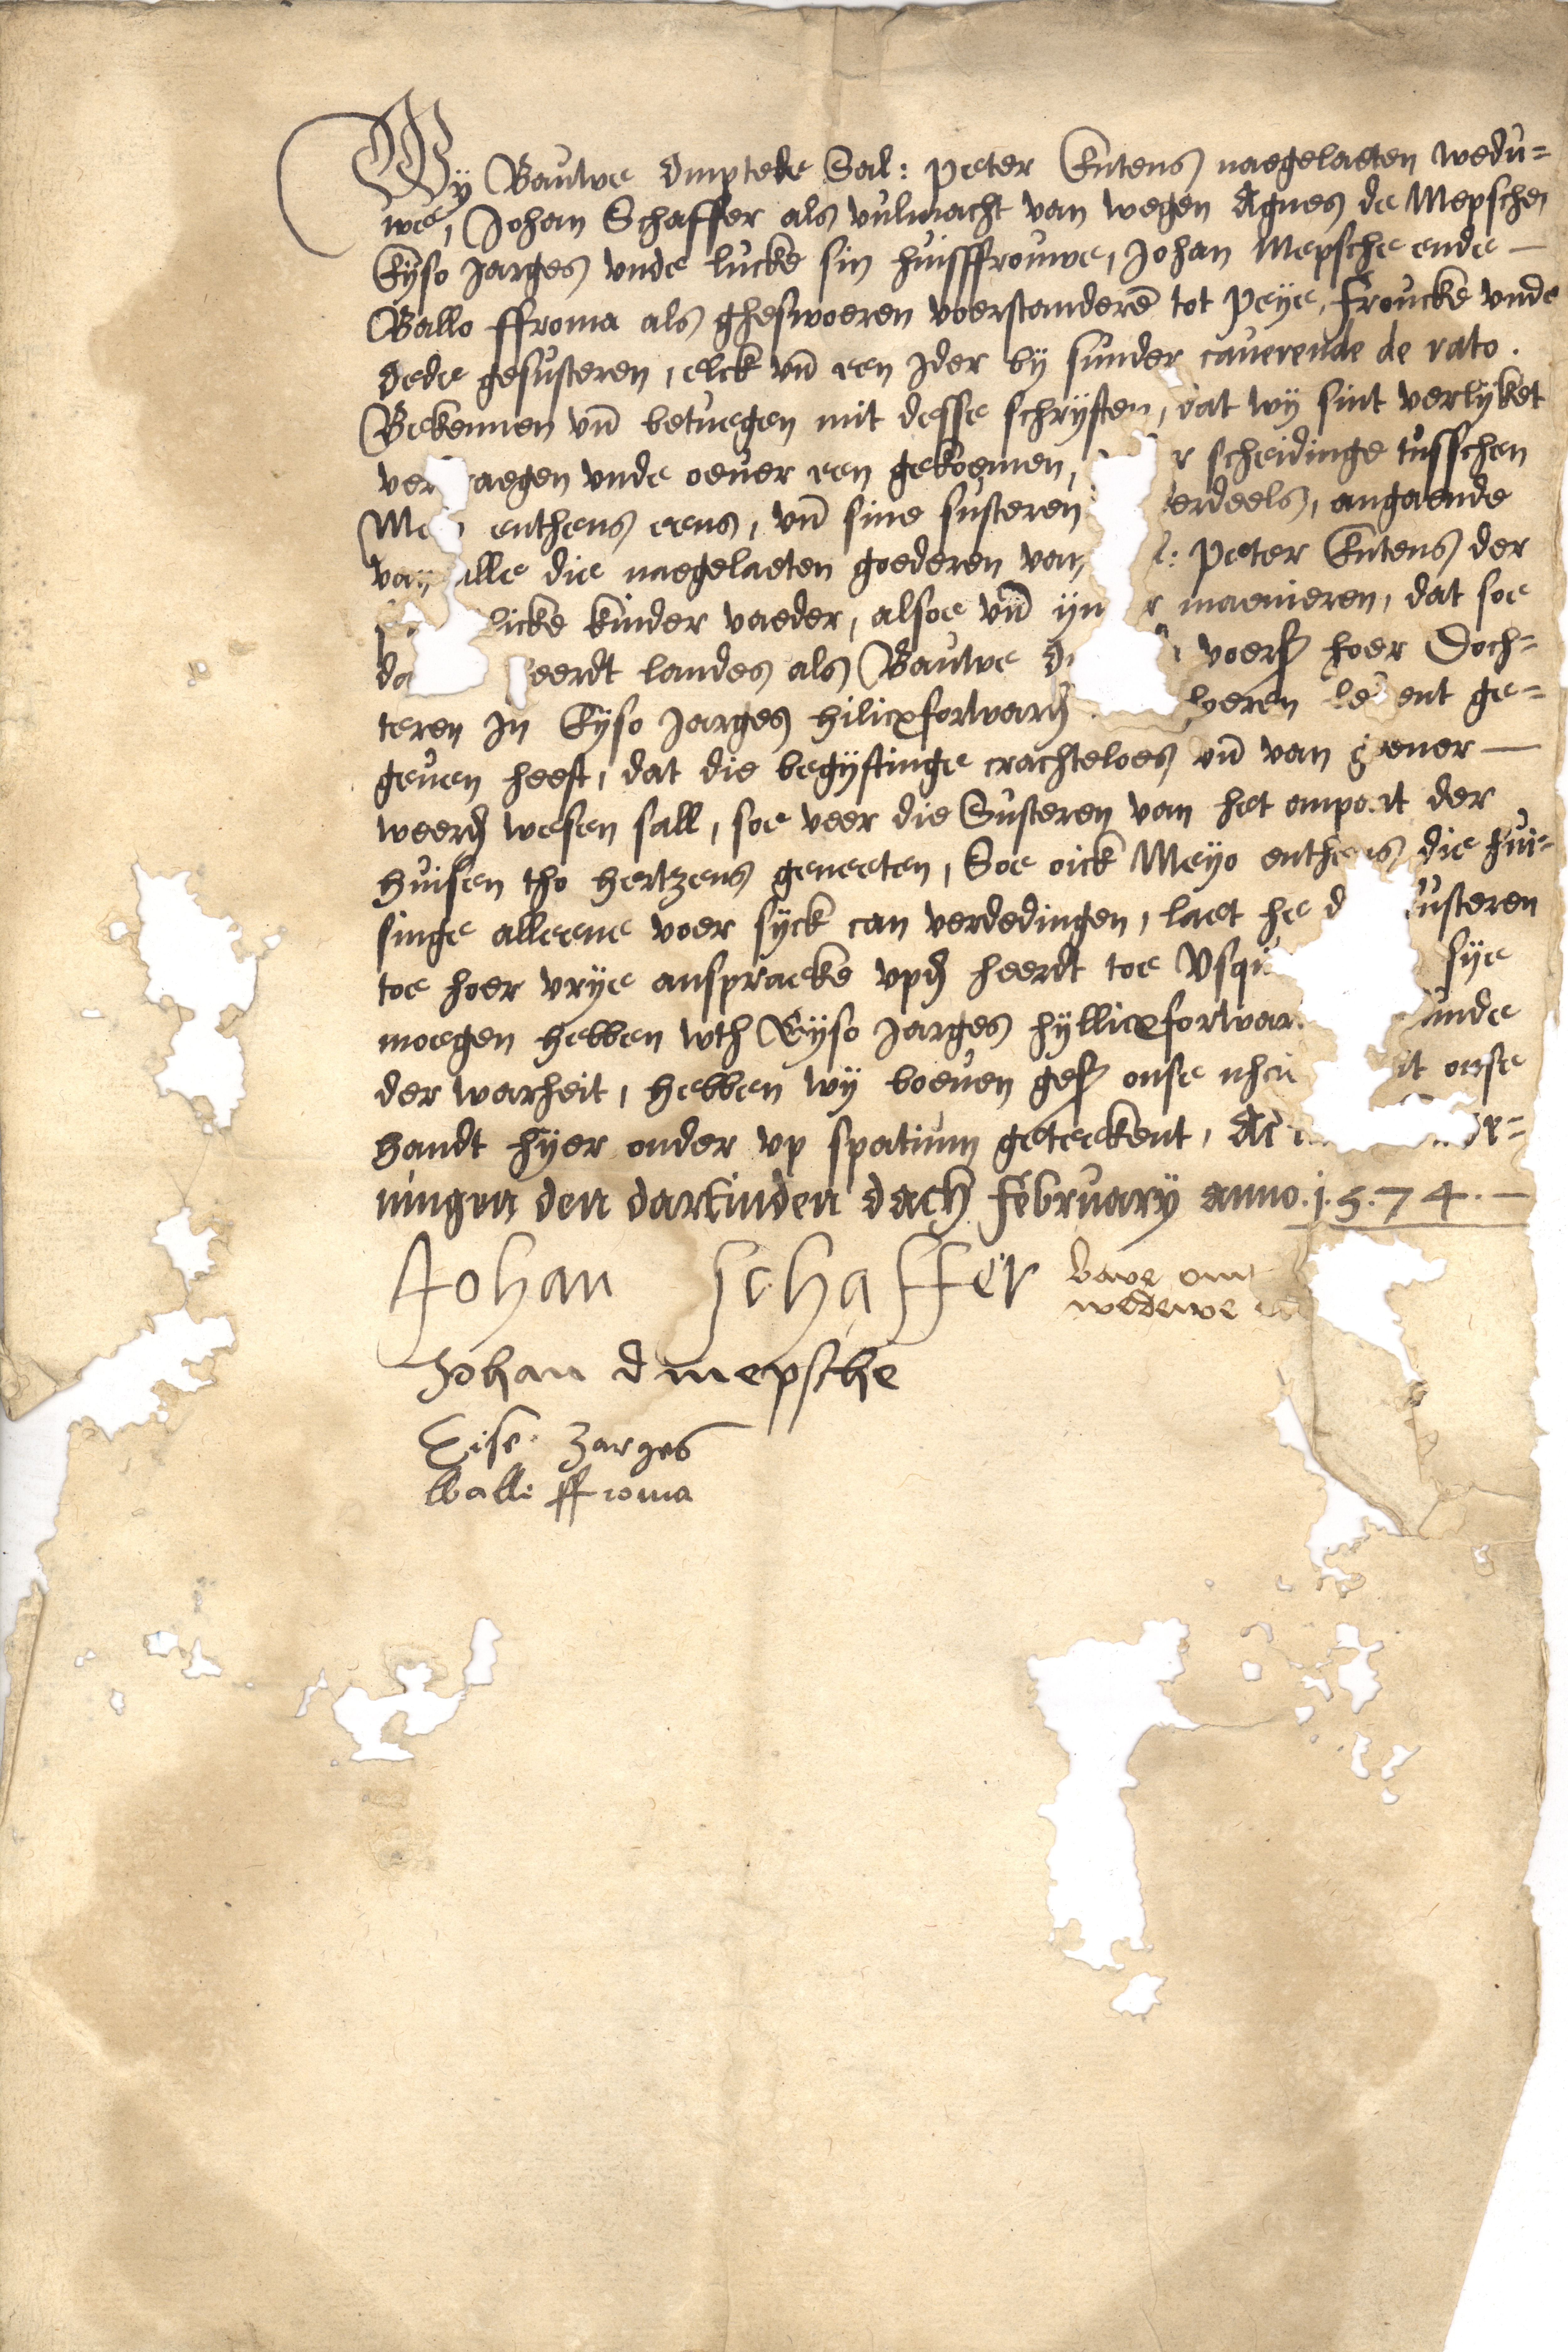 Wy Bauwe Ompteke Sal: Peter Entens naegelaeten wedu=
we, Johan Schaffer als vulmacht van wegen Agnes de Mepschen
Eyso Jarges vnde lucke sin huisffrouwe, Johan Mepsche ende —
Ballo ffroma als gheswoeren voerstanderē tot Peye, Froucke vnde
Dede gesusteren, elck vn̄ een Jder by sunder cauerende de rato.
Bekennen vn̄ betuegen mit desse schryften, dat wy sint verlyket
ver aegen vnde oeuer een gekoemen, r scheidinge tusschen
Me enthens eens, vn̄ sine susteren erdeels, angaende
van alle die naegelaeten goederen van l: Peter Entens der
licke kinder vaeder, alsoe vn̄ yn r maenieren, dat soe
da eerdt landes als Bauwe O voers hoer Doch=
teren Jn Eyso Jarges hilicxforward heren le ent ge=
geuen heeft, dat die begyftinge crachteloes vn̄ van gener —
weerd wesen sall, soe veer die Susteren van het anpart der
Huisen tho Hertzens geneeten, Soe oick Meyo enthens die hui=
singe alleene voer syck can verdedingen, laet he d susteren
toe hoer vrye ansprache vpd heerdt toe Vsqu sye
moegen hebben wth Eyso Jarges hyllicxforwar unde
der warheit, hebben wy boeuen ges onse it onse
Handt hyer onder vp spatium geteekent, Ac
ningen den dartinden dach February anno. 1.5.74. —
Johan Schaffer bawe om
wedewe
Johan d mepsche
Eise Jarges
Balle ffroma